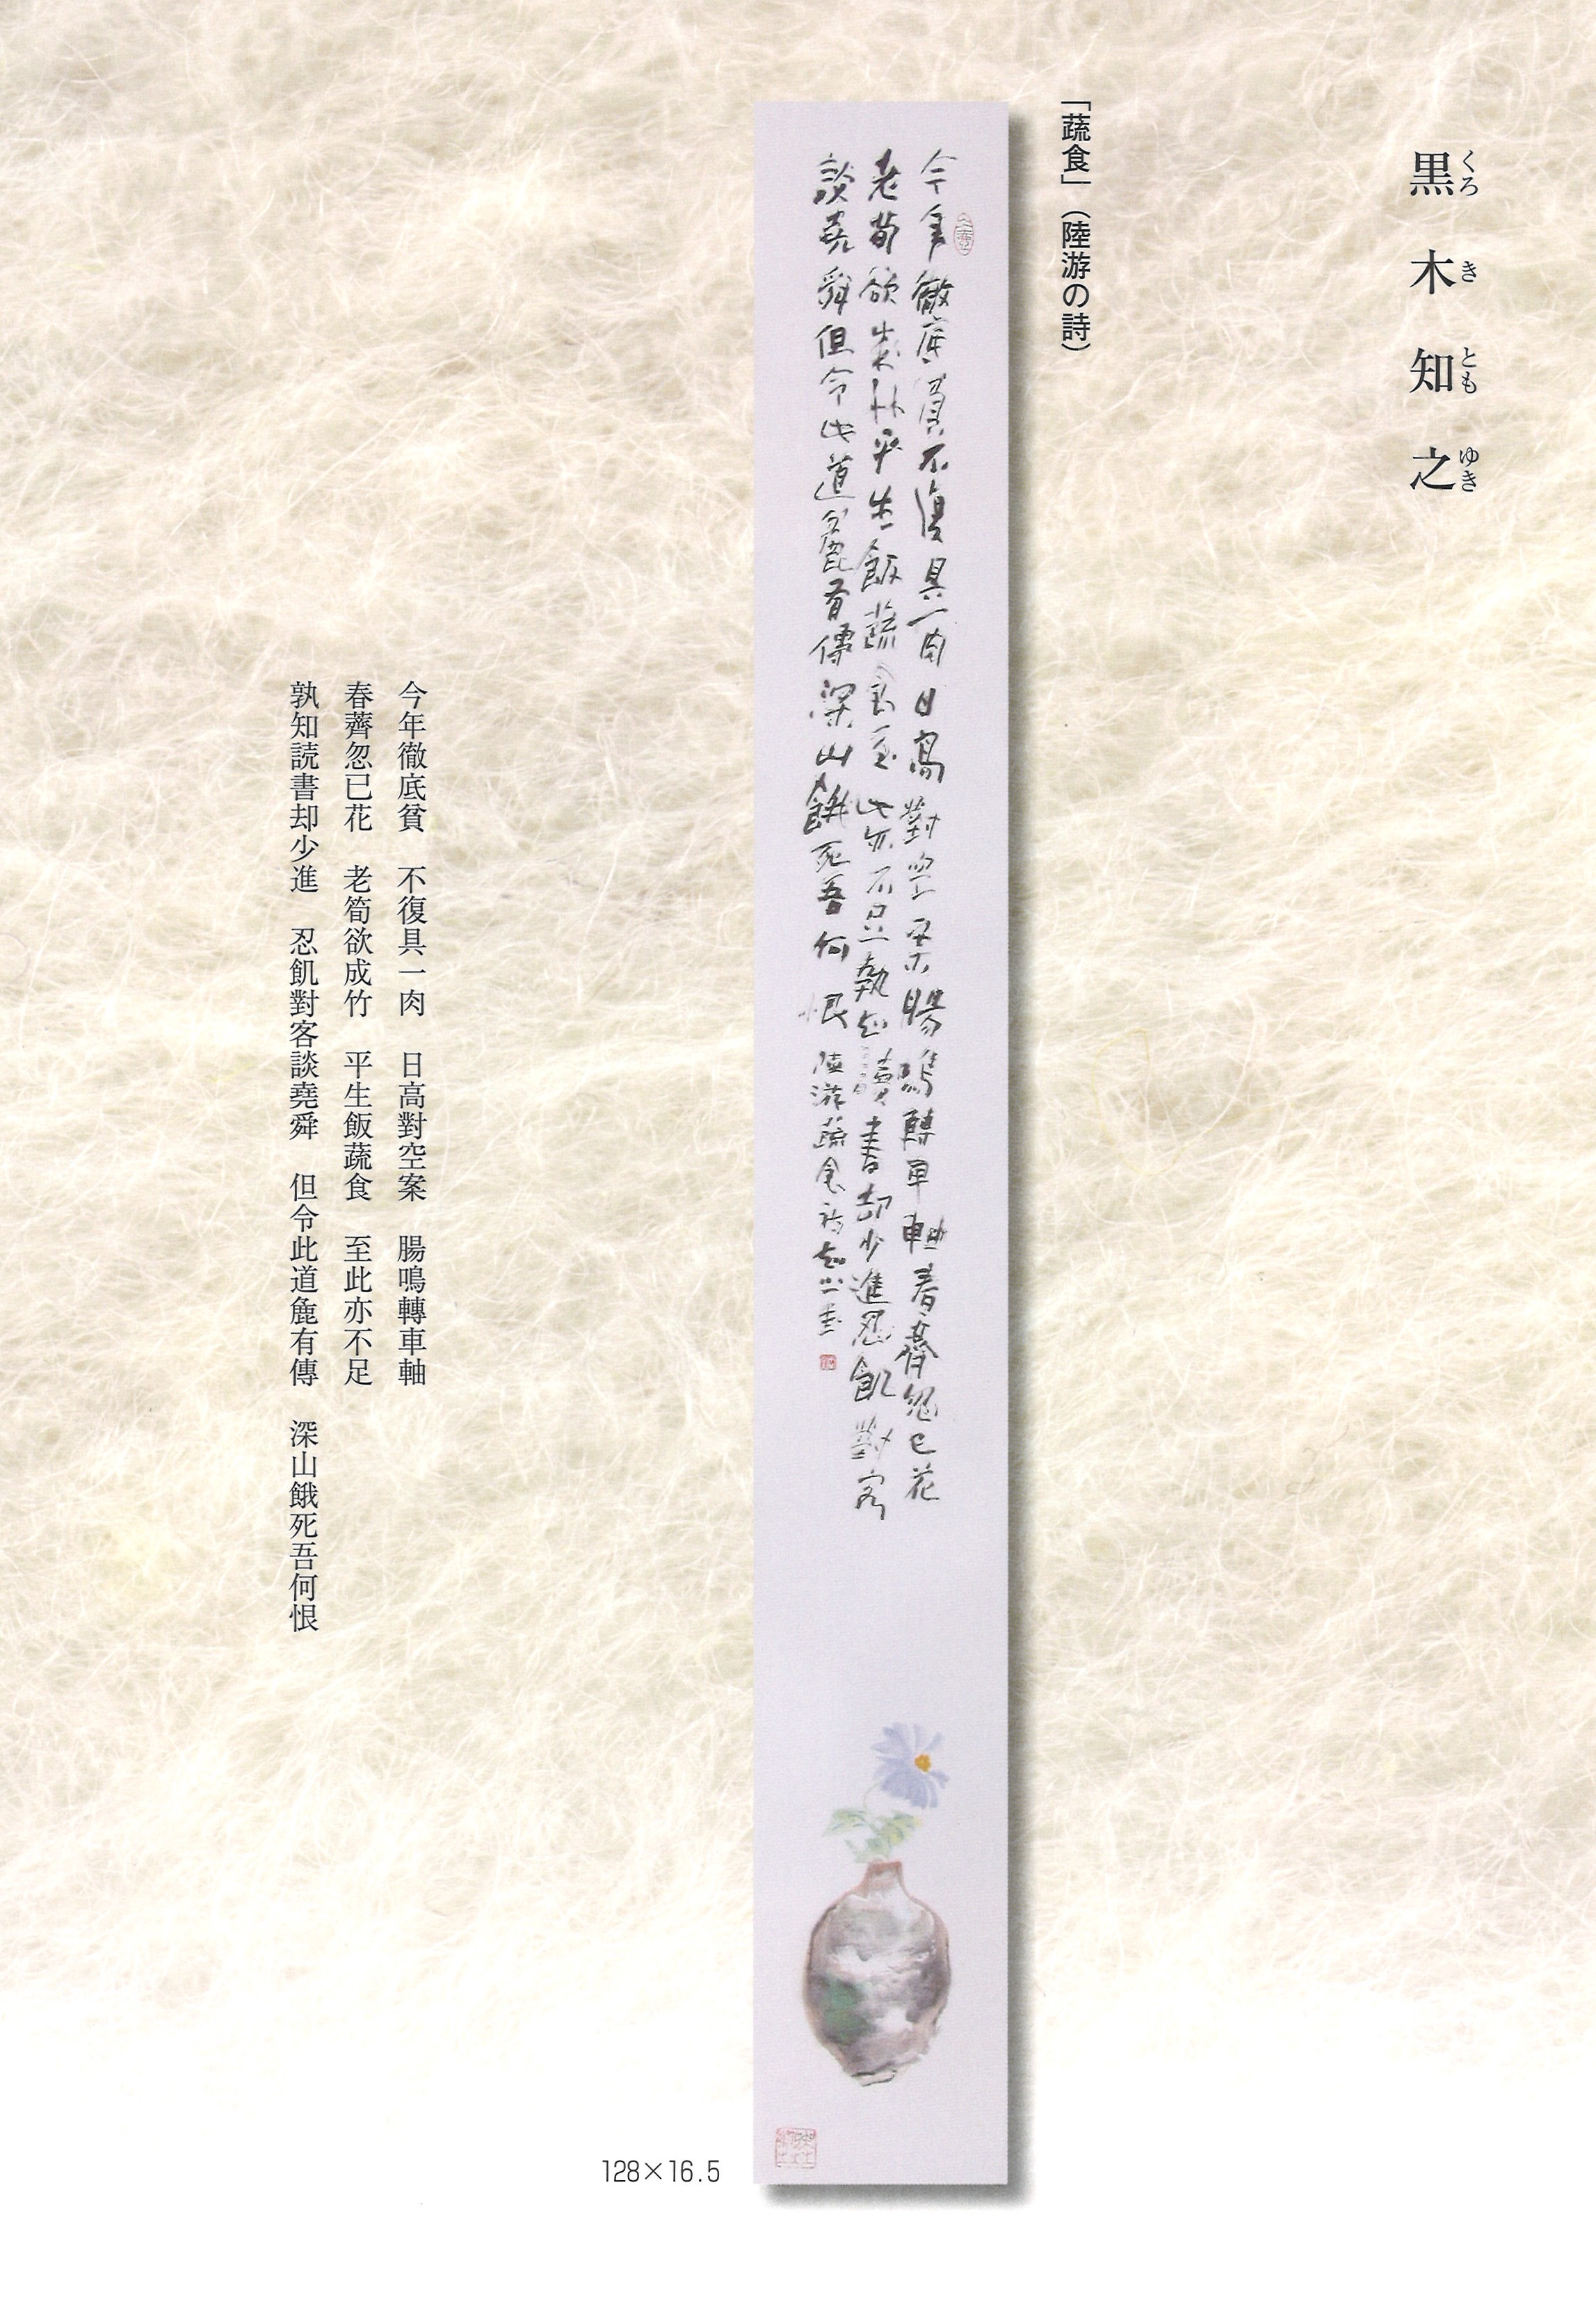 黒木知之
くろきともゆき
「蔬食」（陸游の詩）
今年徹底貧不復具一肉日高對空案腸鳴轉車軸春薺忽已花
老筍欲成竹平生飯蔬食至此亦不足孰知讀書却少進忍飢對客
談堯舜但令此道麁有傳深山餓死吾何恨 陸游蔬食詩知之書
128×16.5
今年徹底貧　不復具一肉　日高對空案　腸鳴轉車軸
春薺忽已花　老筍欲成竹　平生飯蔬食　至此亦不足
孰知読書却少進　忍飢對客談堯舜　但令此道麁有傳　深山餓死吾何恨